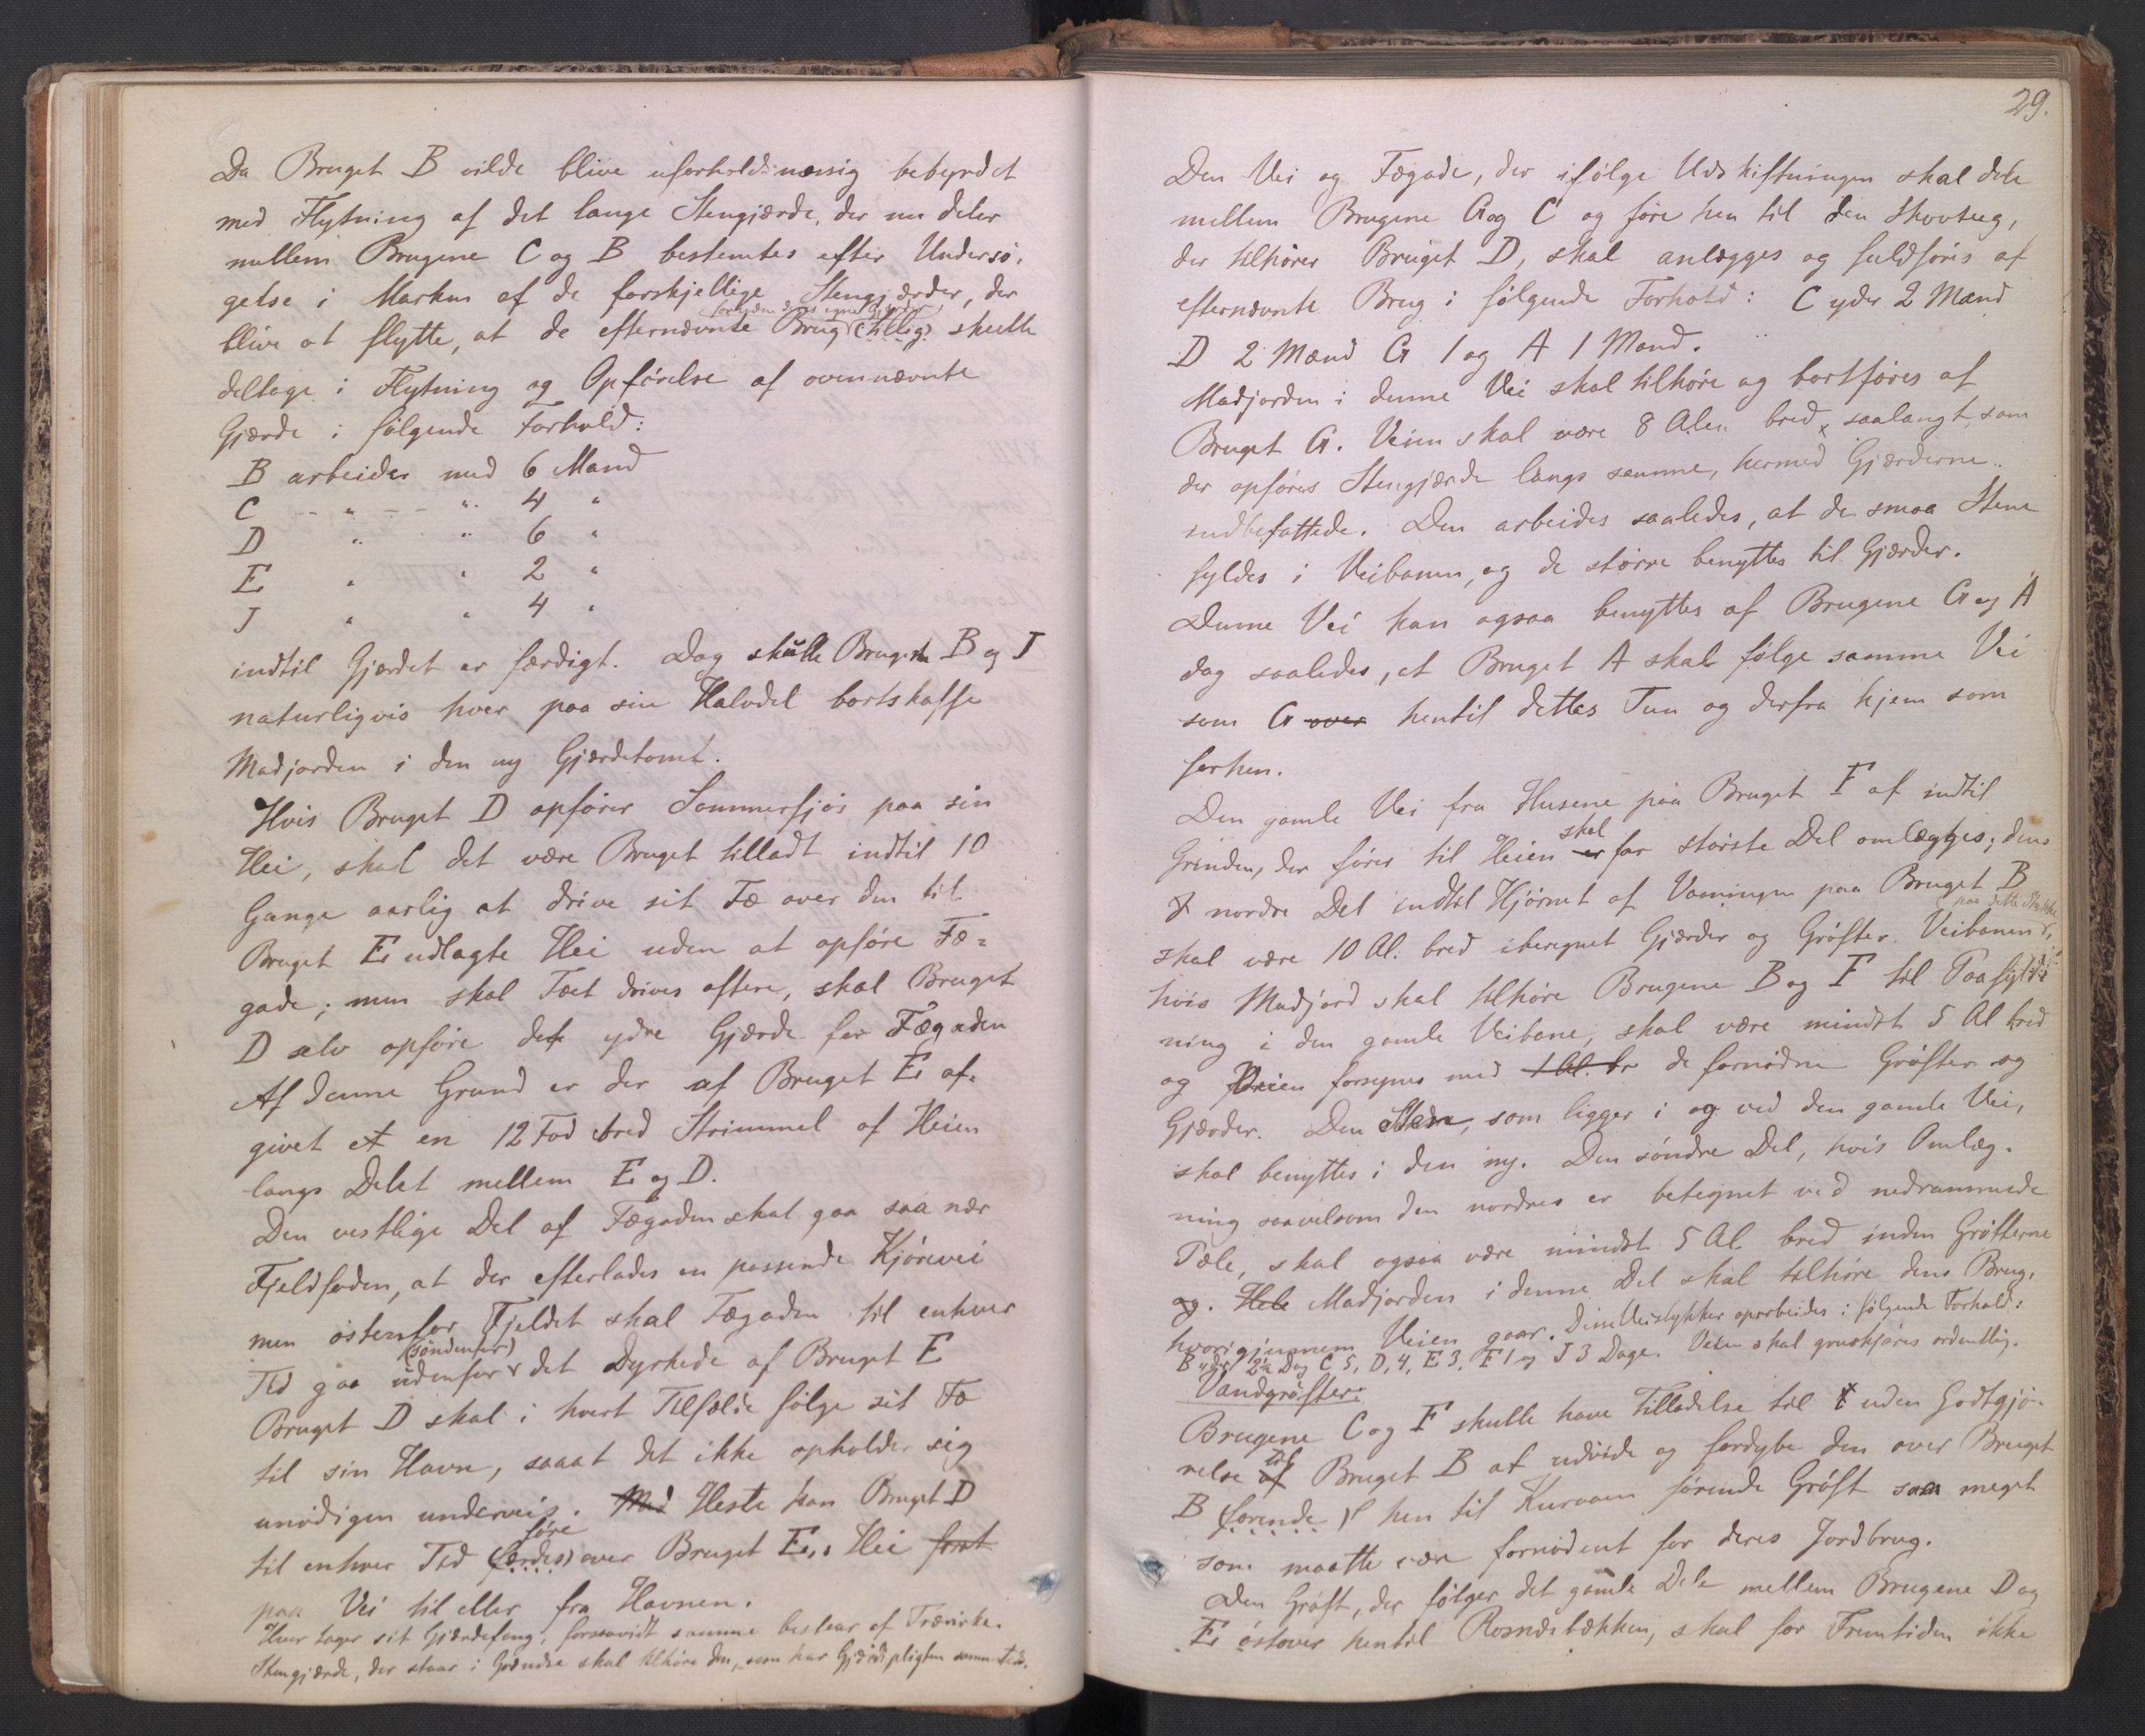 Da Bruget B vilde blive uforholdsmæssig bebyrdet
med Flytning af det lange Stengjærde, der nu deler
mellem Brugene C og B bestemtes efter Undersø-
gelse i Marken af de forskjellige Stengjærder, der
blive at flytte, at de efternævnte Brug (tillig) skulle
deltage i Flytning og Opførelse af ovennævnte
Gjærde i følgende Forhold:
B arbeider med 6 Mand
C " " 4 "
D " " 6 "
E " " 2 "
J " " 4 "
indtil Gjærdet er færdigt. Dog skulle Brugene B og J
naturligvis hver paa sin Halvdel bortskaffe
Madjorden i den ny Gjærdetomt.
Hvis Bruget D opfører Sommerfjøs paa sin
Hei, skal det være Bruget tilladt indtil 10
Gange aarlig at drive sit Fæ over den til
Bruget E udlagte Hei uden at opføre Fæ=
gade; men skal Fæet drives oftere, skal Bruget
D selv opføre det ydre Gjærde for Fægaden
Af denne Grund er der af Bruget E af-
givet et en 12 Fod bred Strimmel af Heien
langs Delet mellem E og D.
Den vestlige Del af Fægaden skal gaa saa nær
Fjeldfoden, at der efterlades en passende Kjørevei
men østenfor Fjeldet skal Fægaden til enhver
(søndenfor)
Tid gaa udenfor det Dyrkede af Bruget E
Bruget D skal i hvert Tilfælde følge sit Fæ
til sin Havn, saaat det ikke opholder sig
unødigen underveis. Med Heste kan Bruget D
føre
til enhver Tid (færdes) over Bruget E,s Hei forat
paa Vei til eller fra Havnen.
Hver tager sit Gjærdefang, forsaavidt samme bestaar af Trævirke.
Stengjærde, der staar i Grændse skal tilhøre den, som har Gjærdepligten samme Sted.
29.
Den Vei og Fægade, der ifølge Udskiftningen skal dele
mellem Brugene G og C og føre hen til den Skovteig,
der tilhører Bruget D, skal anlægges og fuldføres af
efternævnte Brug i følgende Forhold: C yder 2 Mand
D 2 Mænd G 1 og A 1 Mand.
Madjorden i denne Vei skal tilhøre og bortføres af
Bruget G. Veien skal være 8 Alen bred, saalangt, som
der opføres Stengjærde langs samme, hermed Gjærderne
indbefattede. Den arbeides saaledes, at de smaa Stene
fyldes i Veibanen, og de større benyttes til Gjærder.
Denne Vei kan ogsaa benyttes af Brugene G og A
dog saaledes, at Bruget A skal følge samme Vei
som G over hentil dettes Tun og derfra hjem som
forhen.
Den gamle Vei fra Husene paa Bruget F af indtil
skal
Grinden, der fører til Heien er for største Del omlægges; dens
nordre Del indtil Hjørnet af Vaaningen paa Bruget B
paa dette Stykke
skal være 10 Al. bred iberegnet Gjærder og Grøfter. Veibanen,
hvis Madjord skal tilhøre Brugene B og F til Paafyld-
ning i den gamle Veibane, skal være mindst 5 Al bred
og Veien forsynes med 1 Al. br de fornødne Grøfter og
Gjærder. Den Sten, som ligger i og ved den gamle Vei,
skal benyttes i den ny. Den søndre Del, hvis Omlæg-
ning saavelsom den nordres er betegnet ved nedrammede
Pæle, skal ogsaa være mindst 5 Al. bred inden Grøfterne
og. Hele Madjorden i denne Del skal tilhøre dens Brug,
hvorigjennem Veien gaar. Disse Veistykker oparbeides i følgende Forhold:
B yder 2½ Dag C 5, D, 4, E 3, F 1 og J 3 Dage. Veien skal gruskjøres ordentlig.
Vandgrøfter:
Brugene C og F skulle have Tilladelse til uden Godtgjø-
til
relse af Bruget B at udvide og fordybe den over Bruget
B (førende) hen til Kurvaen førende Grøft saa meget
som maatte være fornødent for deres Jordbrug.
Den Grøft, der følger det gamle Dele mellem Brugene D og
E østover hentil Rosnæsbækken, skal for Fremtiden ikke